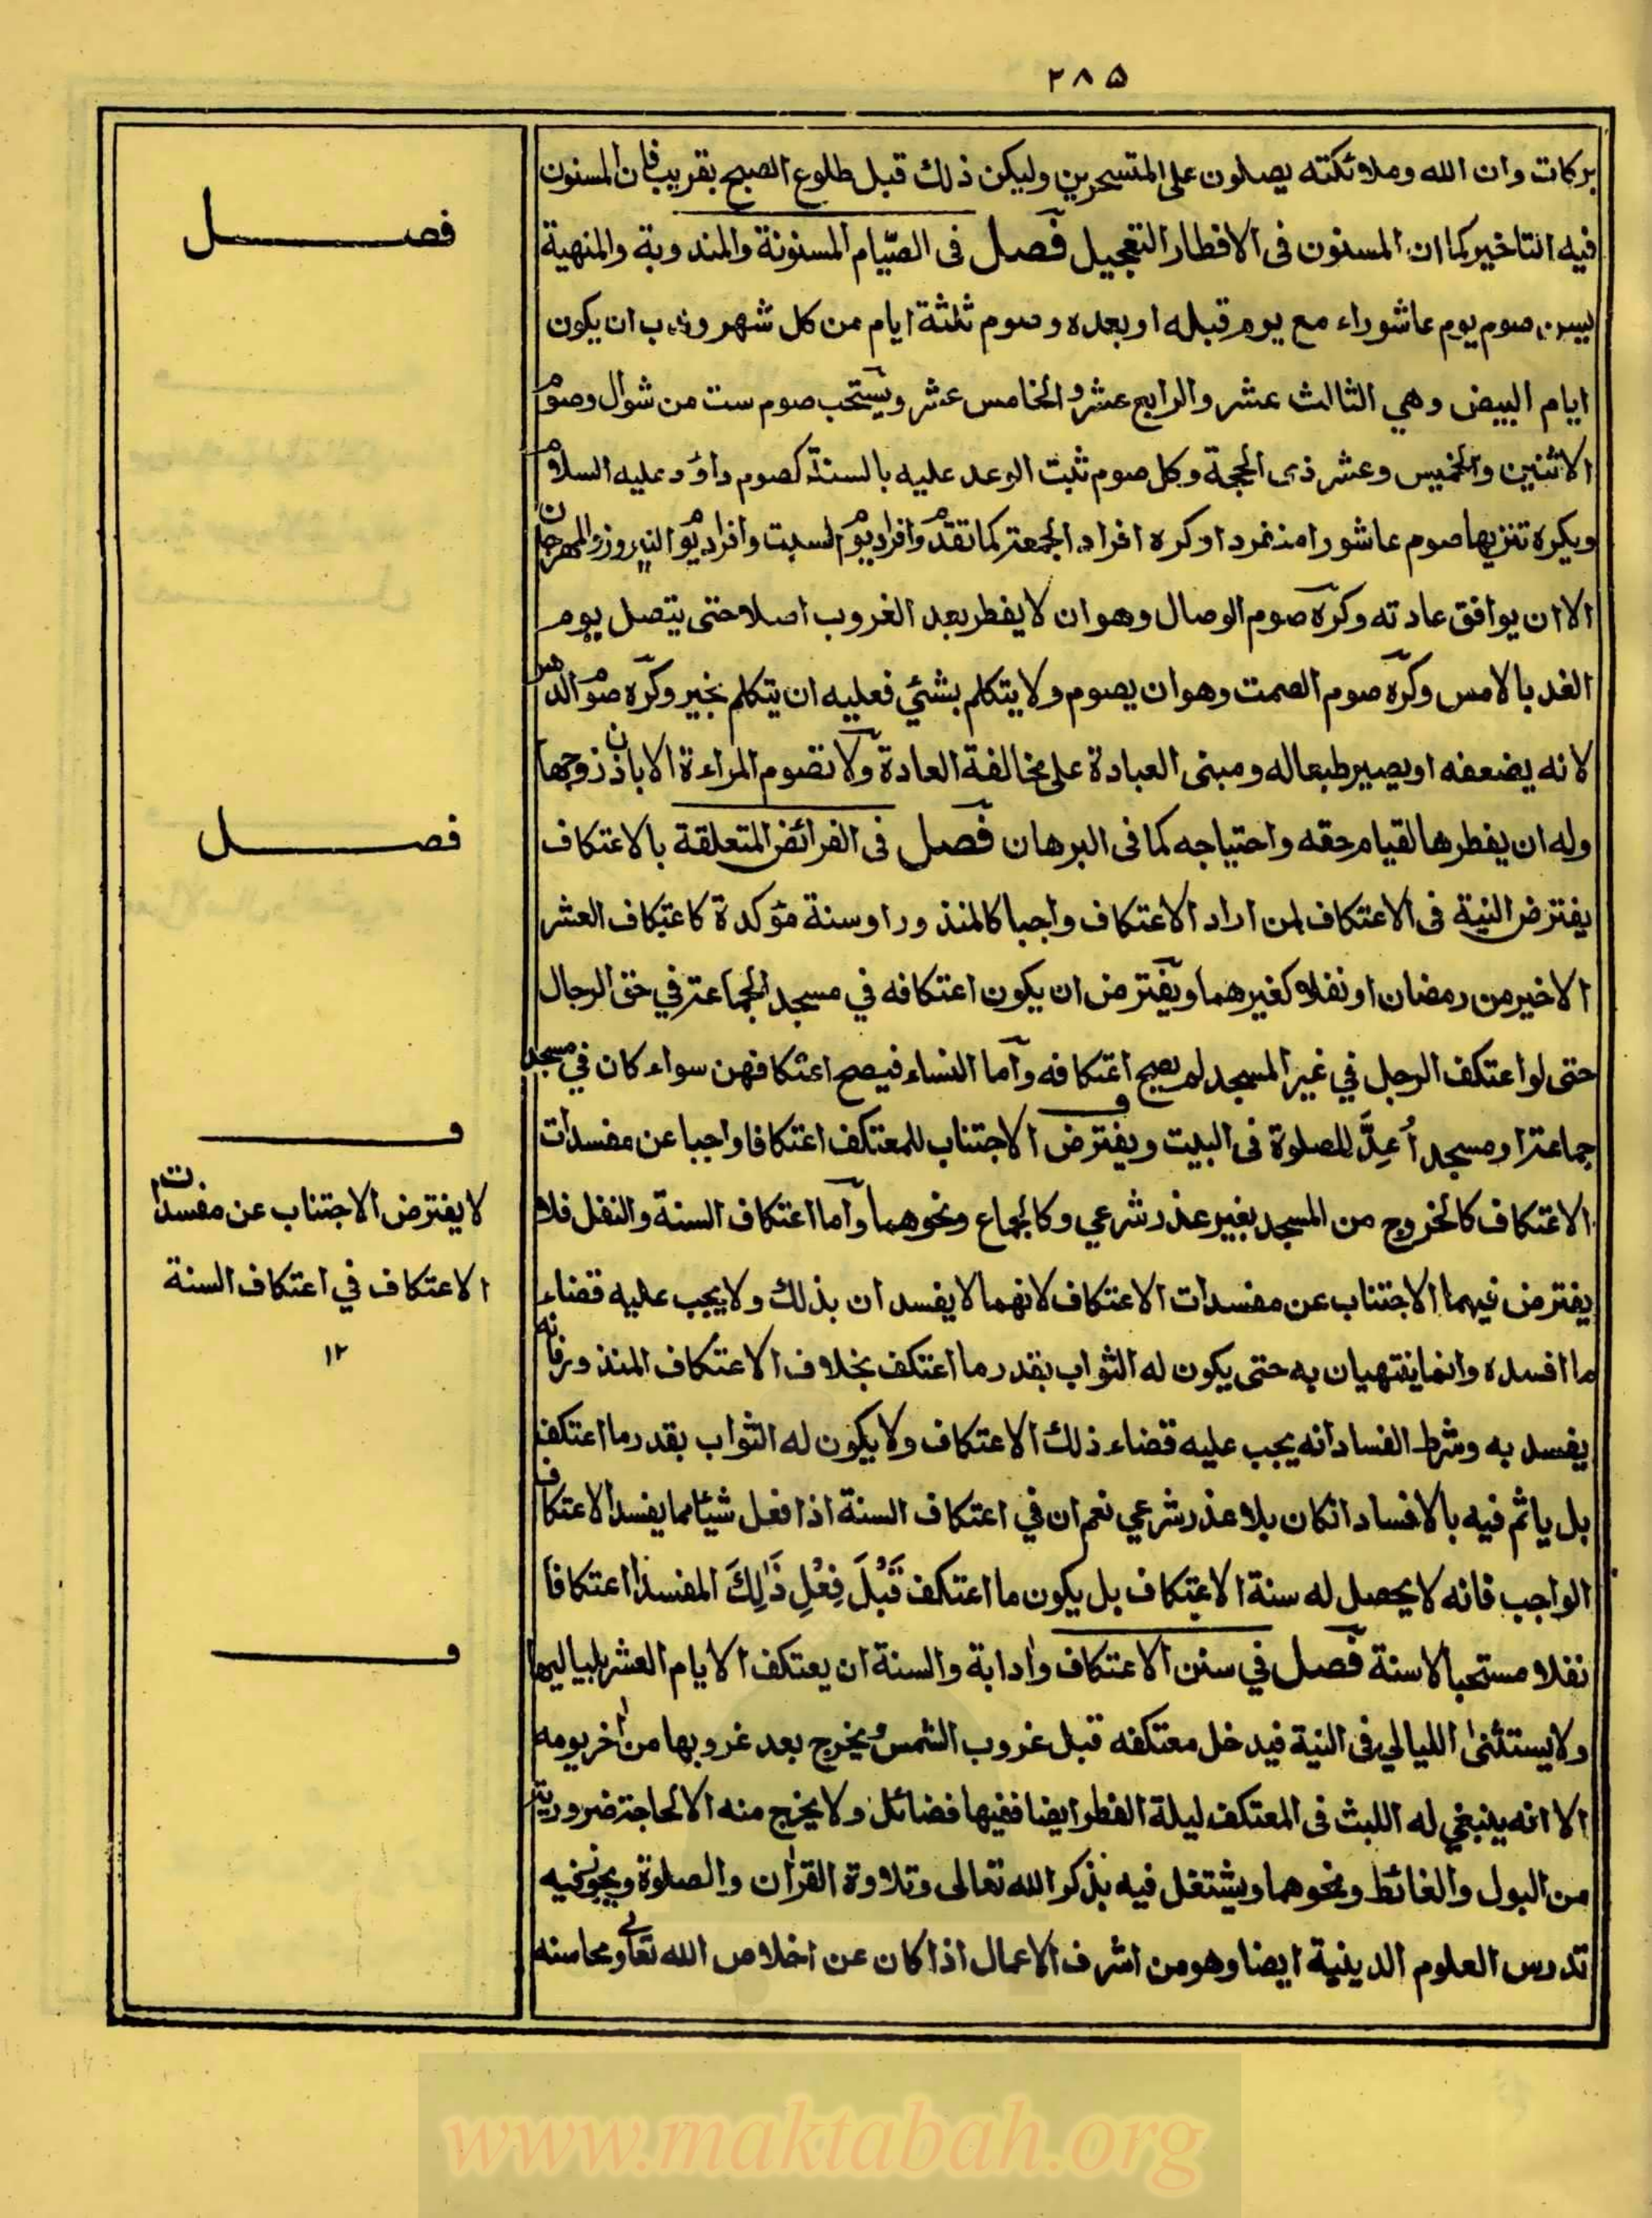 ٢٨٥
بركات وان الله وملائكته يصلون على المتسحرين وليكن ذلك قبل طلوع الصبح بقريب فان المسنون
فيه التاخير كما ان المسنون فى الافطار التعجيل فصل فى الصّيام المسنونة والمندوبة والمنهية
يسن صوم يوم عاشوراء مع يوم قبله او بعده وصوم ثلثة ايام من كل شهر وندب ان يكون
ايام البيض وهي الثالث عشر والرابع عشر والخامس عشر ويستحب صوم ست من شوال وصوم
الاثنين والخميس وعشر ذى الحجة وكل صوم ثبت الوعد عليه بالسنة كصوم داؤد عليه السلام
ويكره تنزيها صوم عاشورا منفردا وكره افراد الجمعة كما تقدم وافراد يوم السبت وافراد يوم النيروز والمهرجان
الا ان يوافق عادته وكره صوم الوصال وهو ان لا يفطر بعد الغروب اصلا حتى يتصل يوم
الغد بالامس وكره صوم الصمت وهو ان يصوم ولا يتكلم بشئي فعليه ان يتكلم بخير وكره صوم الدهر
لانه يضعفه او يصير طبعا له ومبنى العبادة على مخالفة العادة ولا تصوم المراءة الا باذن زوجها
وله ان يفطرها لقيام حقه واحتياجه كما فى البرهان فصل فى الفرائض المتعلقة بالاعتكاف
يفترض النية فى الاعتكاف لمن اراد الاعتكاف واجبا كالمنذور او سنة مؤكدة كاعتكاف العشر
الاخير من رمضان او نفلا كغيرهما ويفترض ان يكون اعتكافه في مسجد الجماعة في حق الرجال
حتى لو اعتكف الرجل في غير المسجد لم يصح اعتكافه واما النساء فيصح اعتكافهن سواء كان في مسجد
جماعة او مسجد أعِدَّ للصلوة فى البيت ويفترض الاجتناب للمعتكف اعتكافا واجبا عن مفسدات
الاعتكاف كالخروج من المسجد بغير عذر شرعي وكالجماع ونحوهما واما اعتكاف السنة والنفل فلا
يفترض فيهما الاجتناب عن مفسدات الاعتكاف لانهما لا يفسدان بذلك ولا يجب عليه قضاء
ما افسده وانما ينتهيان به حتى يكون له الثواب بقدر ما اعتكف بخلاف الاعتكاف المنذور فانه
يفسد به وشرط الفساد انه يجب عليه قضاء ذلك الاعتكاف ولا يكون له الثواب بقدر ما اعتكف
بل ياثم فيه بالافساد انكان بلا عذر شرعي نعم ان في اعتكاف السنة اذا فعل شيئا مما يفسد الاعتكاف
الواجب فانه لا يحصل له سنة الاعتكاف بل يكون ما اعتكف قَبْلَ فِعْلِ ذَٰلِكَ المفسد اعتكافا
نفلا مستحبا لا سنة فصل في سنن الاعتكاف وادابة والسنة ان يعتكف الايام العشر بلياليها
ولا يستثنى الليالي فى النية فيدخل معتكفه قبل غروب الشمس ويخرج بعد غروبها من اخر يومه
الا انه ينبغي له اللبث فى المعتكف ليلة الفطر ايضا ففيها فضائل ولا يخرج منه الا لحاجة ضرورية
من البول والغائط ونحوهما ويشتغل فيه بذكر الله تعالى وتلاوة القران والصلوة ويجوز فيه
تدرس العلوم الدينية ايضا وهو من اشرف الاعمال اذا كان عن اخلاص الله تعالى ومحاسنه
فصل
فصل
ف
لا يفترض الاجتناب عن مفسدات
الاعتكاف في اعتكاف السنة
١٢
ف
www.maktabah.org